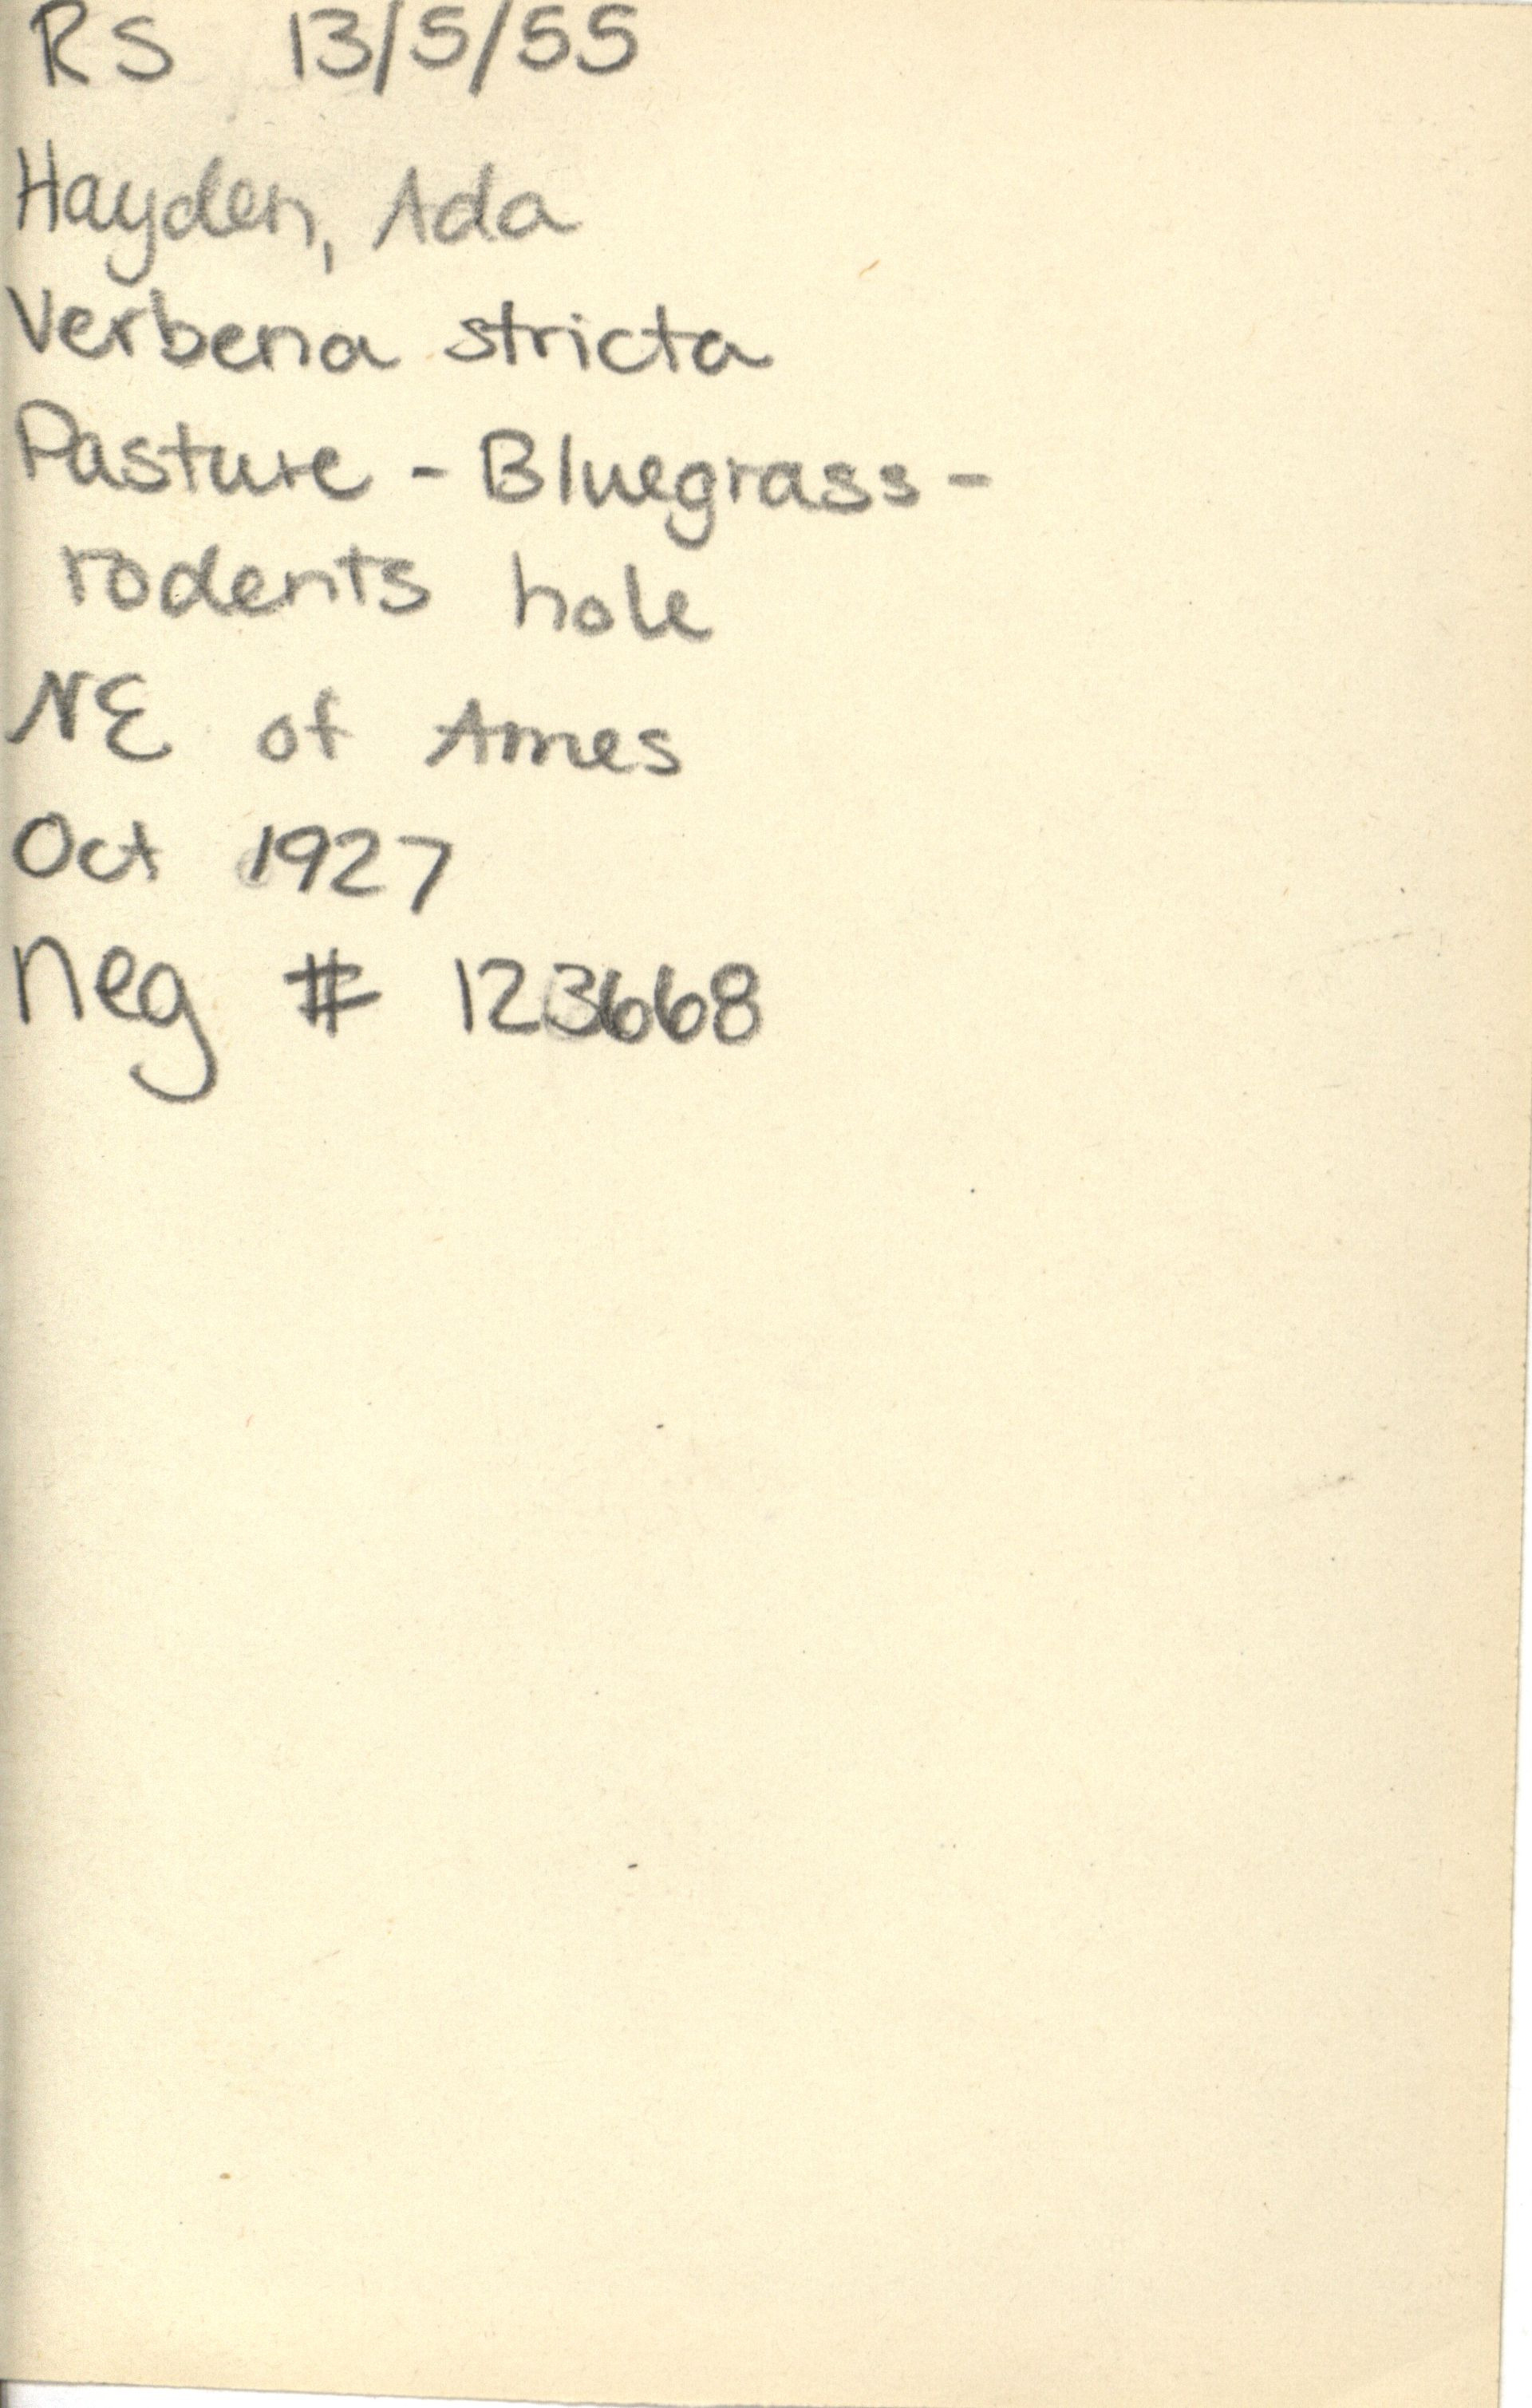 RS 13/5/55
Hayden, Ada
Verbena stricta
Pasture - Bluegrass -
rodents hole
NE of Ames
Oct 1927
neg # 123668